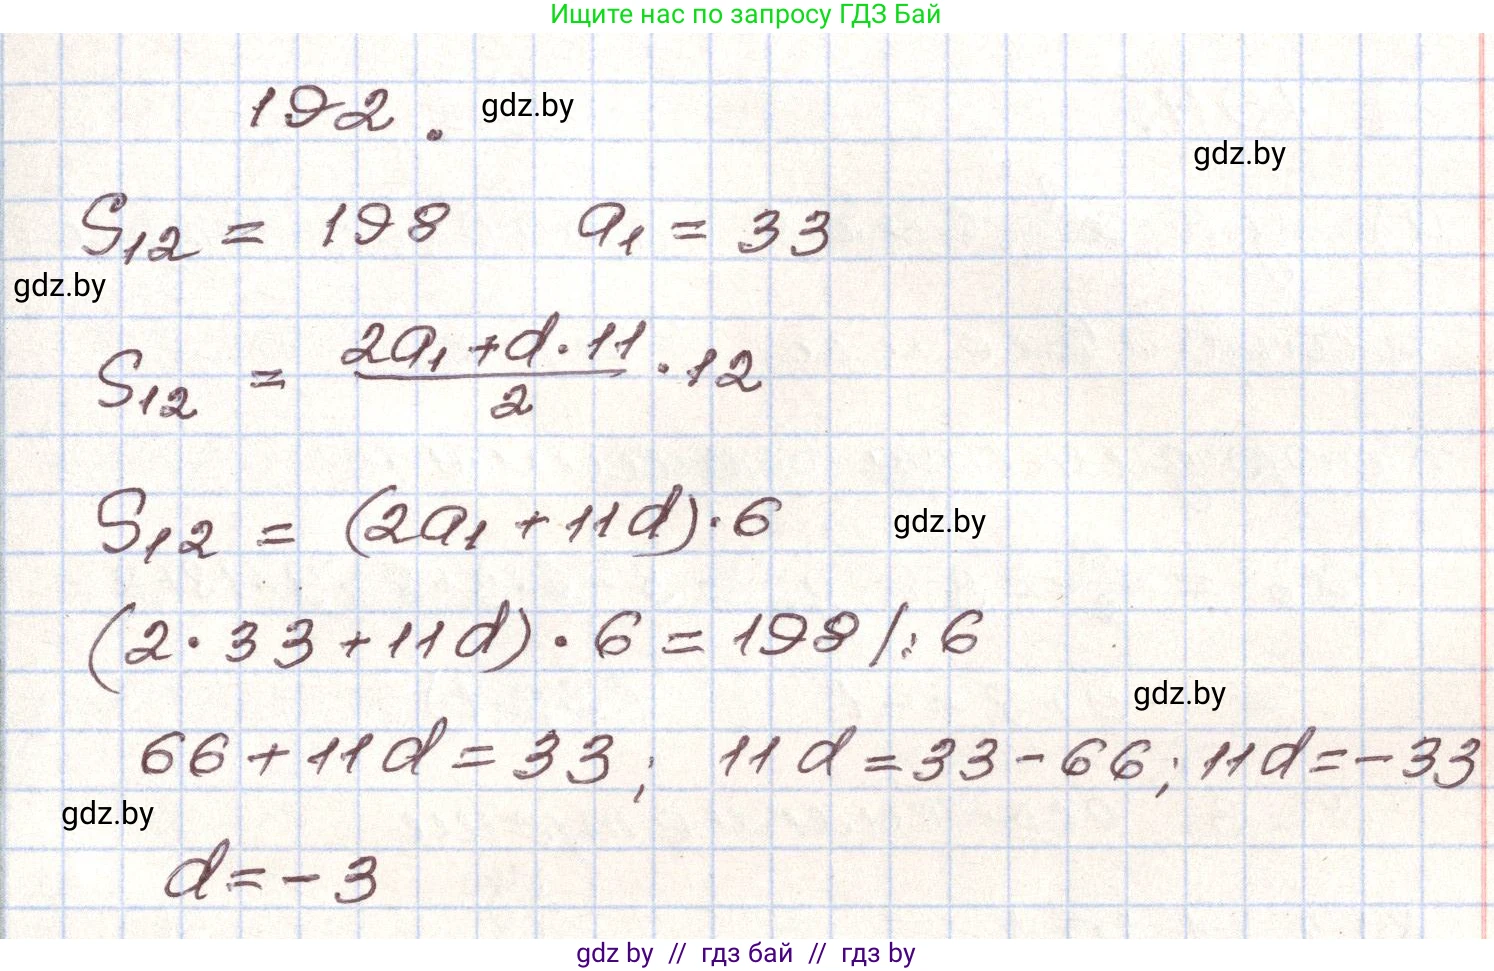 Ищите нас по запросу ГДЗ Бай
192. gdz.by
gdz.by
S₁₂ = 198 a₁ = 33
gdz.by
S₁₂ = (2a₁ + d · 11)/2 · 12
S₁₂ = (2a₁ + 11d) · 6 gdz.by
(2 · 33 + 11d) · 6 = 198 / : 6
gdz.by
66 + 11d = 33; 11d = 33 - 66; 11d = -33
gdz.by
d = -3
gdz by // гдз бай // гдз by